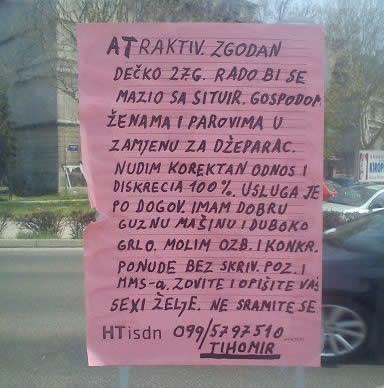 ATRAKTIV. ZGODAN
DEČKO 27G. RADO BI SE
MAZIO SA SITUIR. GOSPODOM
ŽENAMA I PAROVIMA U
ZAMJENU ZA DŽEPARAC.
NUDIM KOREKTAN ODNOS I
DISKRECIA 100%. USLUGA JE
PO DOGOV. IMAM DOBRU
GUZNU MAŠINU I DUBOKO
GRLO. MOLIM OZB. I KONKR.
PONUDE BEZ SKRIV. POZ. I
MMS-a. ZOVITE I OPIŠITE VAŠ
SEXI ŽELJE. NE SRAMITE SE
HTisdn 099/5797510
TIHOMIR